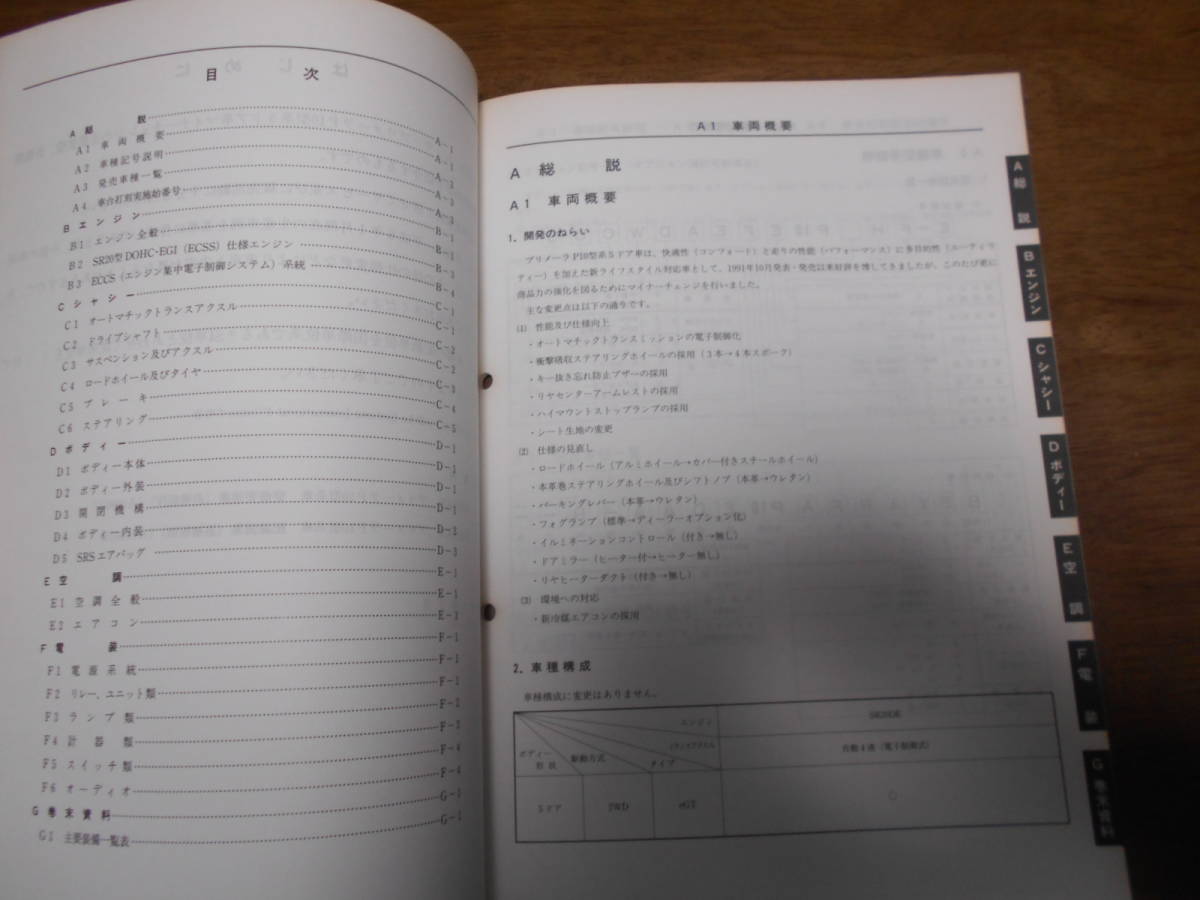 目次
A 総説 A-1
A1 車両概要 A-1
A2 車種記号説明 A-3
A3 発売車種一覧 A-3
A4 車台打刻実施始番号 A-3
B エンジン B-1
B1 エンジン全般 B-1
B2 SR20型 DOHC-EGI (ECSS) 仕様エンジン B-3
B3 ECCS (エンジン集中電子制御システム) 系統 B-4
C シャシー C-1
C1 オートマチックトランスアクスル C-1
C2 ドライブシャフト C-2
C3 サスペンション及びアクスル C-2
C4 ロードホイール及びタイヤ C-3
C5 ブレーキ C-4
C6 ステアリング C-5
D ボディー D-1
D1 ボディー本体 D-1
D2 ボディー外装 D-1
D3 開閉機構 D-1
D4 ボディー内装 D-2
D5 SRSエアバッグ D-3
E 空調 E-1
E1 空調全般 E-1
E2 エアコン E-2
F 電装 F-1
F1 電源系統 F-1
F2 リレー、ユニット類 F-1
F3 ランプ類 F-2
F4 計器類 F-3
F5 スイッチ類 F-4
F6 オーディオ F-4
G 巻末資料 G-1
G1 主要装備一覧表 G-1
A1 車両概要
A 総説
A1 車両概要
1. 開発のねらい
プリメーラ P10型系5ドア車は、快適性 (コンフォート) と走りの性能 (パフォーマンス) に多目的性 (ユーティリ
ティー) を加えた新ライフスタイル対応車として、1991年10月発表・発売以来好評を博してきましたが、このたび更に
商品力の強化を図るためにマイナーチェンジを行いました。
主な変更点は以下の通りです。
(1) 性能及び仕様向上
・オートマチックトランスミッションの電子制御化
・衝撃吸収ステアリングホイールの採用 (3本→4本スポーク)
・キー抜き忘れ防止ブザーの採用
・リヤセンターアームレストの採用
・ハイマウントストップランプの採用
・シート生地の変更
(2) 仕様の見直し
・ロードホイール (アルミホイール→カバー付きスチールホイール)
・本革巻ステアリングホイール及びシフトノブ (本革→ウレタン)
・パーキングレバー (本革→ウレタン)
・フォグランプ (標準→ディーラーオプション化)
・イルミネーションコントロール (付き→無し)
・ドアミラー (ヒーター付→ヒーター無し)
・リヤヒーターダクト (付き→無し)
(3) 環境への対応
・新冷媒エアコンの採用
2. 車種構成
車種構成に変更はありません。
エンジン SR20DE
トランスアクスル 自動4速 (電子制御式)
ボディー形状 駆動方式 タイプ
5ドア 2WD eGT ○
A 総説
B エンジン
C シャシー
D ボディー
E 空調
F 電装
G 巻末資料